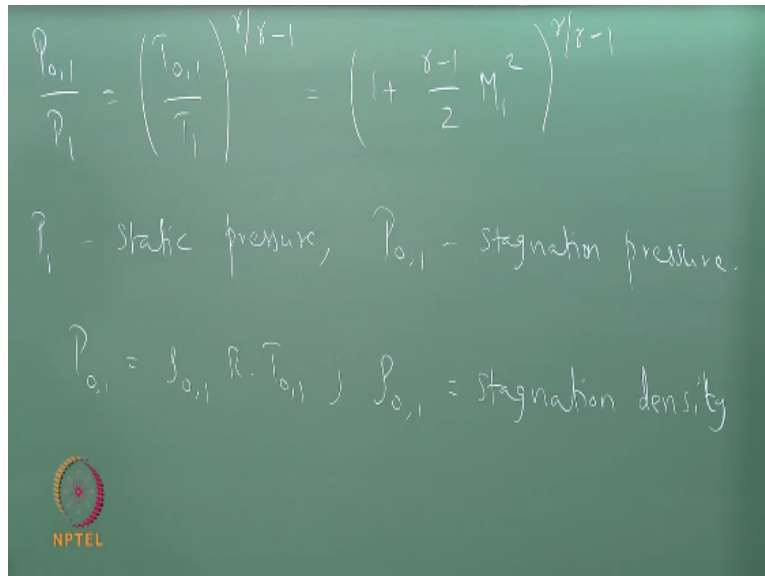 P₀,₁/P₁ = (T₀,₁/T₁)^(γ/γ-1) = (1 + (γ-1)/2 M₁²)^(γ/γ-1)
P₁ - static pressure, P₀,₁ - stagnation pressure.
P₀,₁ = ρ₀,₁ R. T₀,₁ ; ρ₀,₁ = stagnation density
NPTEL